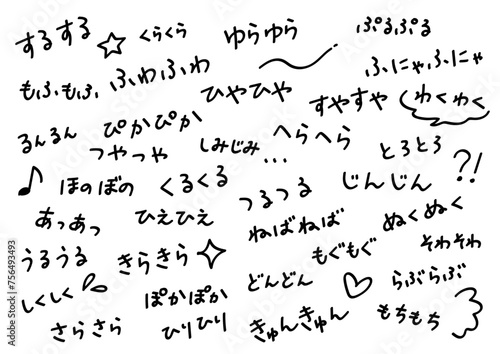 するする
くらくら
ゆらゆら
ぷるぷる
もふもふ
ふわふわ
ひやひや
ふにゃふにゃ
すやすや
わくわく
るんるん
ぴかぴか
つやつや
しみじみ...
へらへら
とろとろ
?!
ほのぼの
くるくる
つるつる
じんじん
あつあつ
ひえひえ
ねばねば
ぬくぬく
うるうる
きらきら
もぐもぐ
そわそわ
しくしく
ぽかぽか
どんどん
らぶらぶ
さらさら
ひりひり
きゅんきゅん
もちもち
Adobe Stock | #756493493